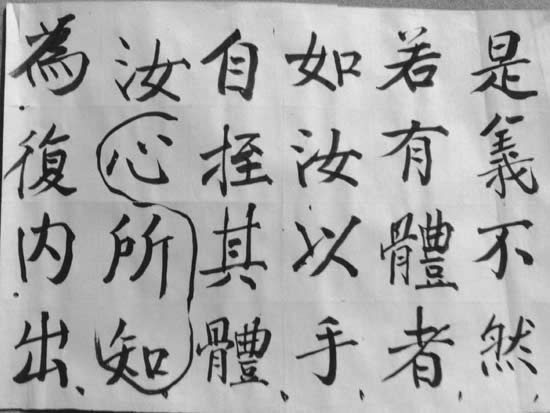 是義不然、
若有體者、
如汝以手、
自挃其體、
汝心所知
為復内出、